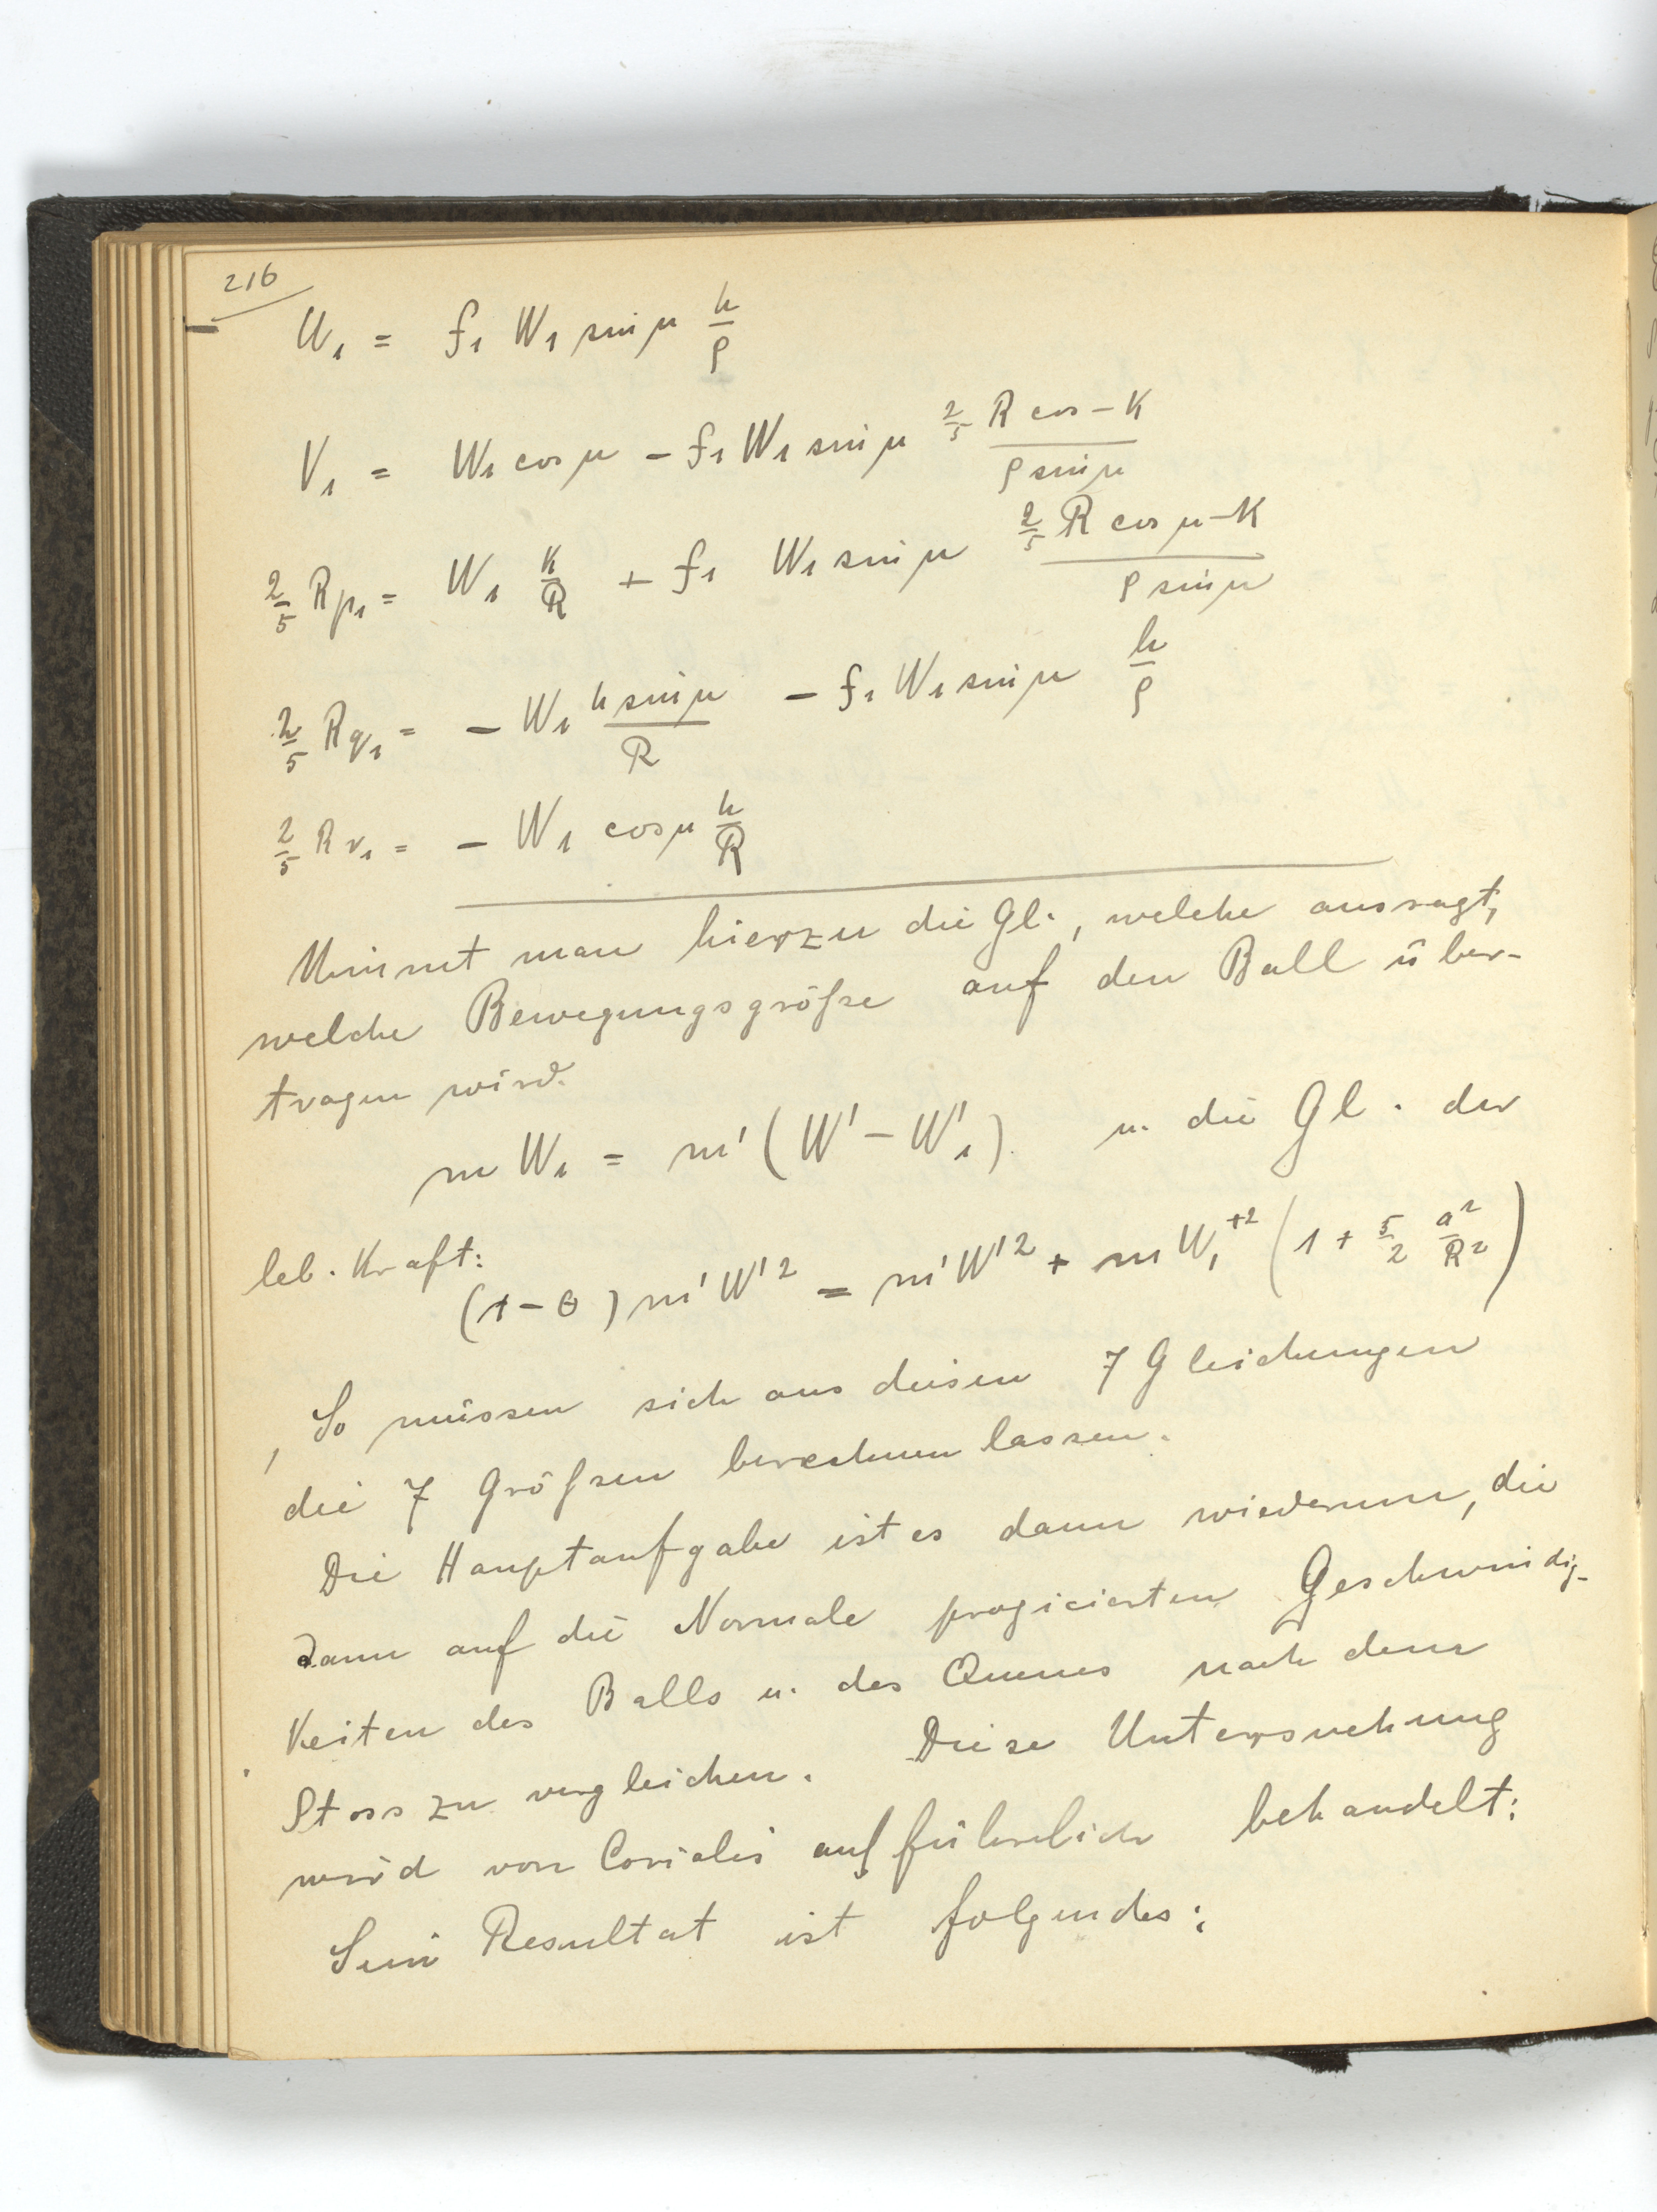 216
U₁ = f₁ W₁ sin μ h/ρ
V₁ = W₁ cos μ – f₁ W₁ sin μ (2/5 R cos – K)/(ρ sin μ)
2/5 R p₁ = W₁ K/R + f₁ W₁ sin μ (2/5 R cos μ – K)/(ρ sin μ)
2/5 R q₁ = – W₁ (h sin μ)/R – f₁ W₁ sin μ h/ρ
2/5 R r₁ = – W₁ cos μ h/R
Nimmt man hierzu die Gl., welche aussagt,
welche Bewegungsgröße auf den Ball über-
tragen wird.
m W₁ = m' (W' – W'₁). u. die Gl. der
leb. Kraft:
(1 – θ) m' W'² = m' W'² + m W₁⁺² (1 + 5/2 a²/R²)
, So müssen sich aus diesen 7 Gleichungen
die 7 Größen berechnen lassen.
Die Hauptaufgabe ist es dann wiederum, die
dann auf die Normale projicierten Geschwindig-
keiten des Balls u. des Queues nach dem
Stoss zu vergleichen. Diese Untersuchung
wird von Coriolis ausführlich behandelt:
Sein Resultat ist folgendes: